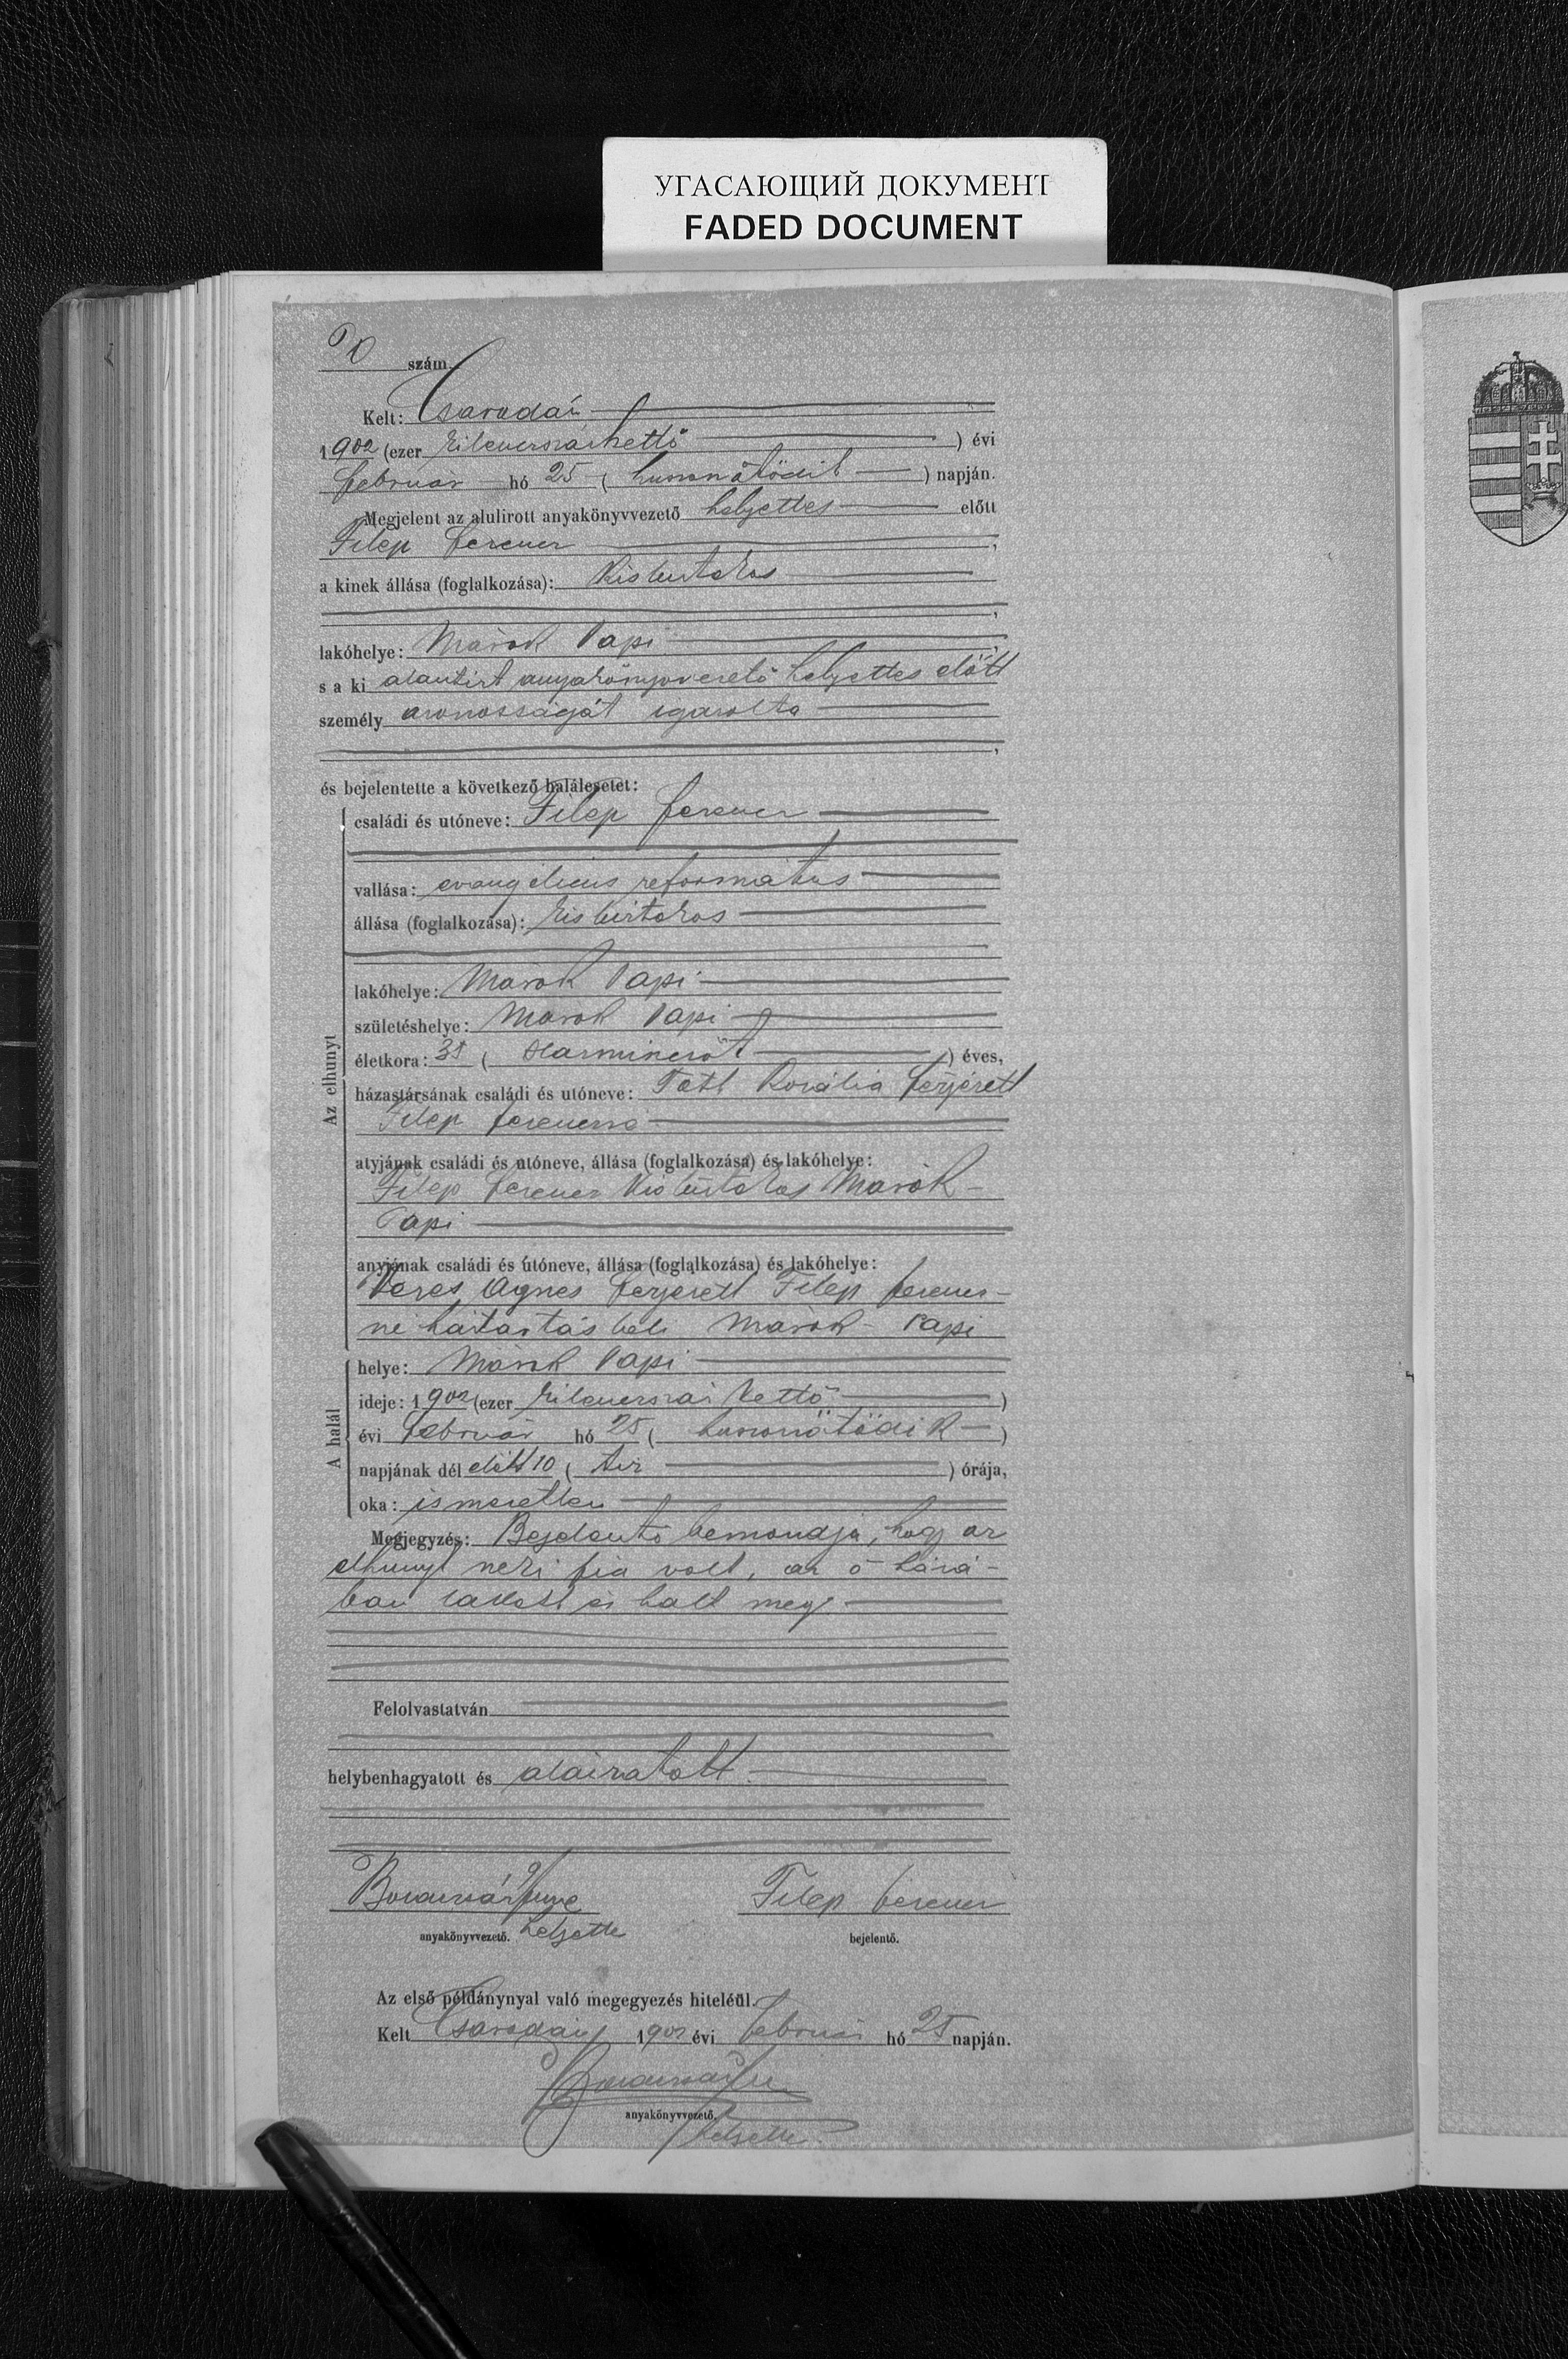 УГАСАЮЩИЙ ДОКУМЕНТ
FADED DOCUMENT
szám.
Kelt: Csarodán
1902 (ezer kilencszázkettő ) évi
február hó 25 ( huszonötödik ) napján.
Megjelent az alulirott anyakönyvvezető helyettes előtt
Filep Ferencz ,
a kinek állása (foglalkozása): Kisbirtokos
,
lakóhelye: Márok Papi ,
s a ki alantirt anyakönyvvezető helyettes előtt
személy azonosságát igazolta
,
és bejelentette a következő halálesetet:
Az elhunyt
családi és utóneve: Filep Ferencz
vallása: evangélicus református
állása (foglalkozása): kisbirtokos
lakóhelye: Márok Papi
születéshelye: Márok Papi
életkora: 35 ( Harmincöt ) éves,
házastársának családi és utóneve: Tóth Rozália férjezett
Filep Ferenczné
atyjának családi és utóneve, állása (foglalkozása) és lakóhelye:
Filep Ferencz Kisbirtokos Márok-
Papi
anyjának családi és utóneve, állása (foglalkozása) és lakóhelye:
Veres Ágnes férjezett Filep Ferencz-
né háztartásbeli Márok-Papi
A halál
helye: Márok Papi
ideje: 1902 (ezer kilenczszáz kettő )
évi február hó 25 ( huszonötödik )
napjának dél előtt 10 ( tiz ) órája,
oka: ismeretlen
Megjegyzés: Bejelentő bemondja, hogy az
elhunyt neki fia volt, az ő házá-
ban lakott és halt meg.
Felolvastatván
helybenhagyatott és aláiratott.
Filep Ferencz
anyakönyvvezető. helyettes
bejelentő.
Az első példánynyal való megegyezés hiteléül.
Kelt Csarodán 1902 évi február hó 25 napján.
anyakönyvvezető.
helyettes.